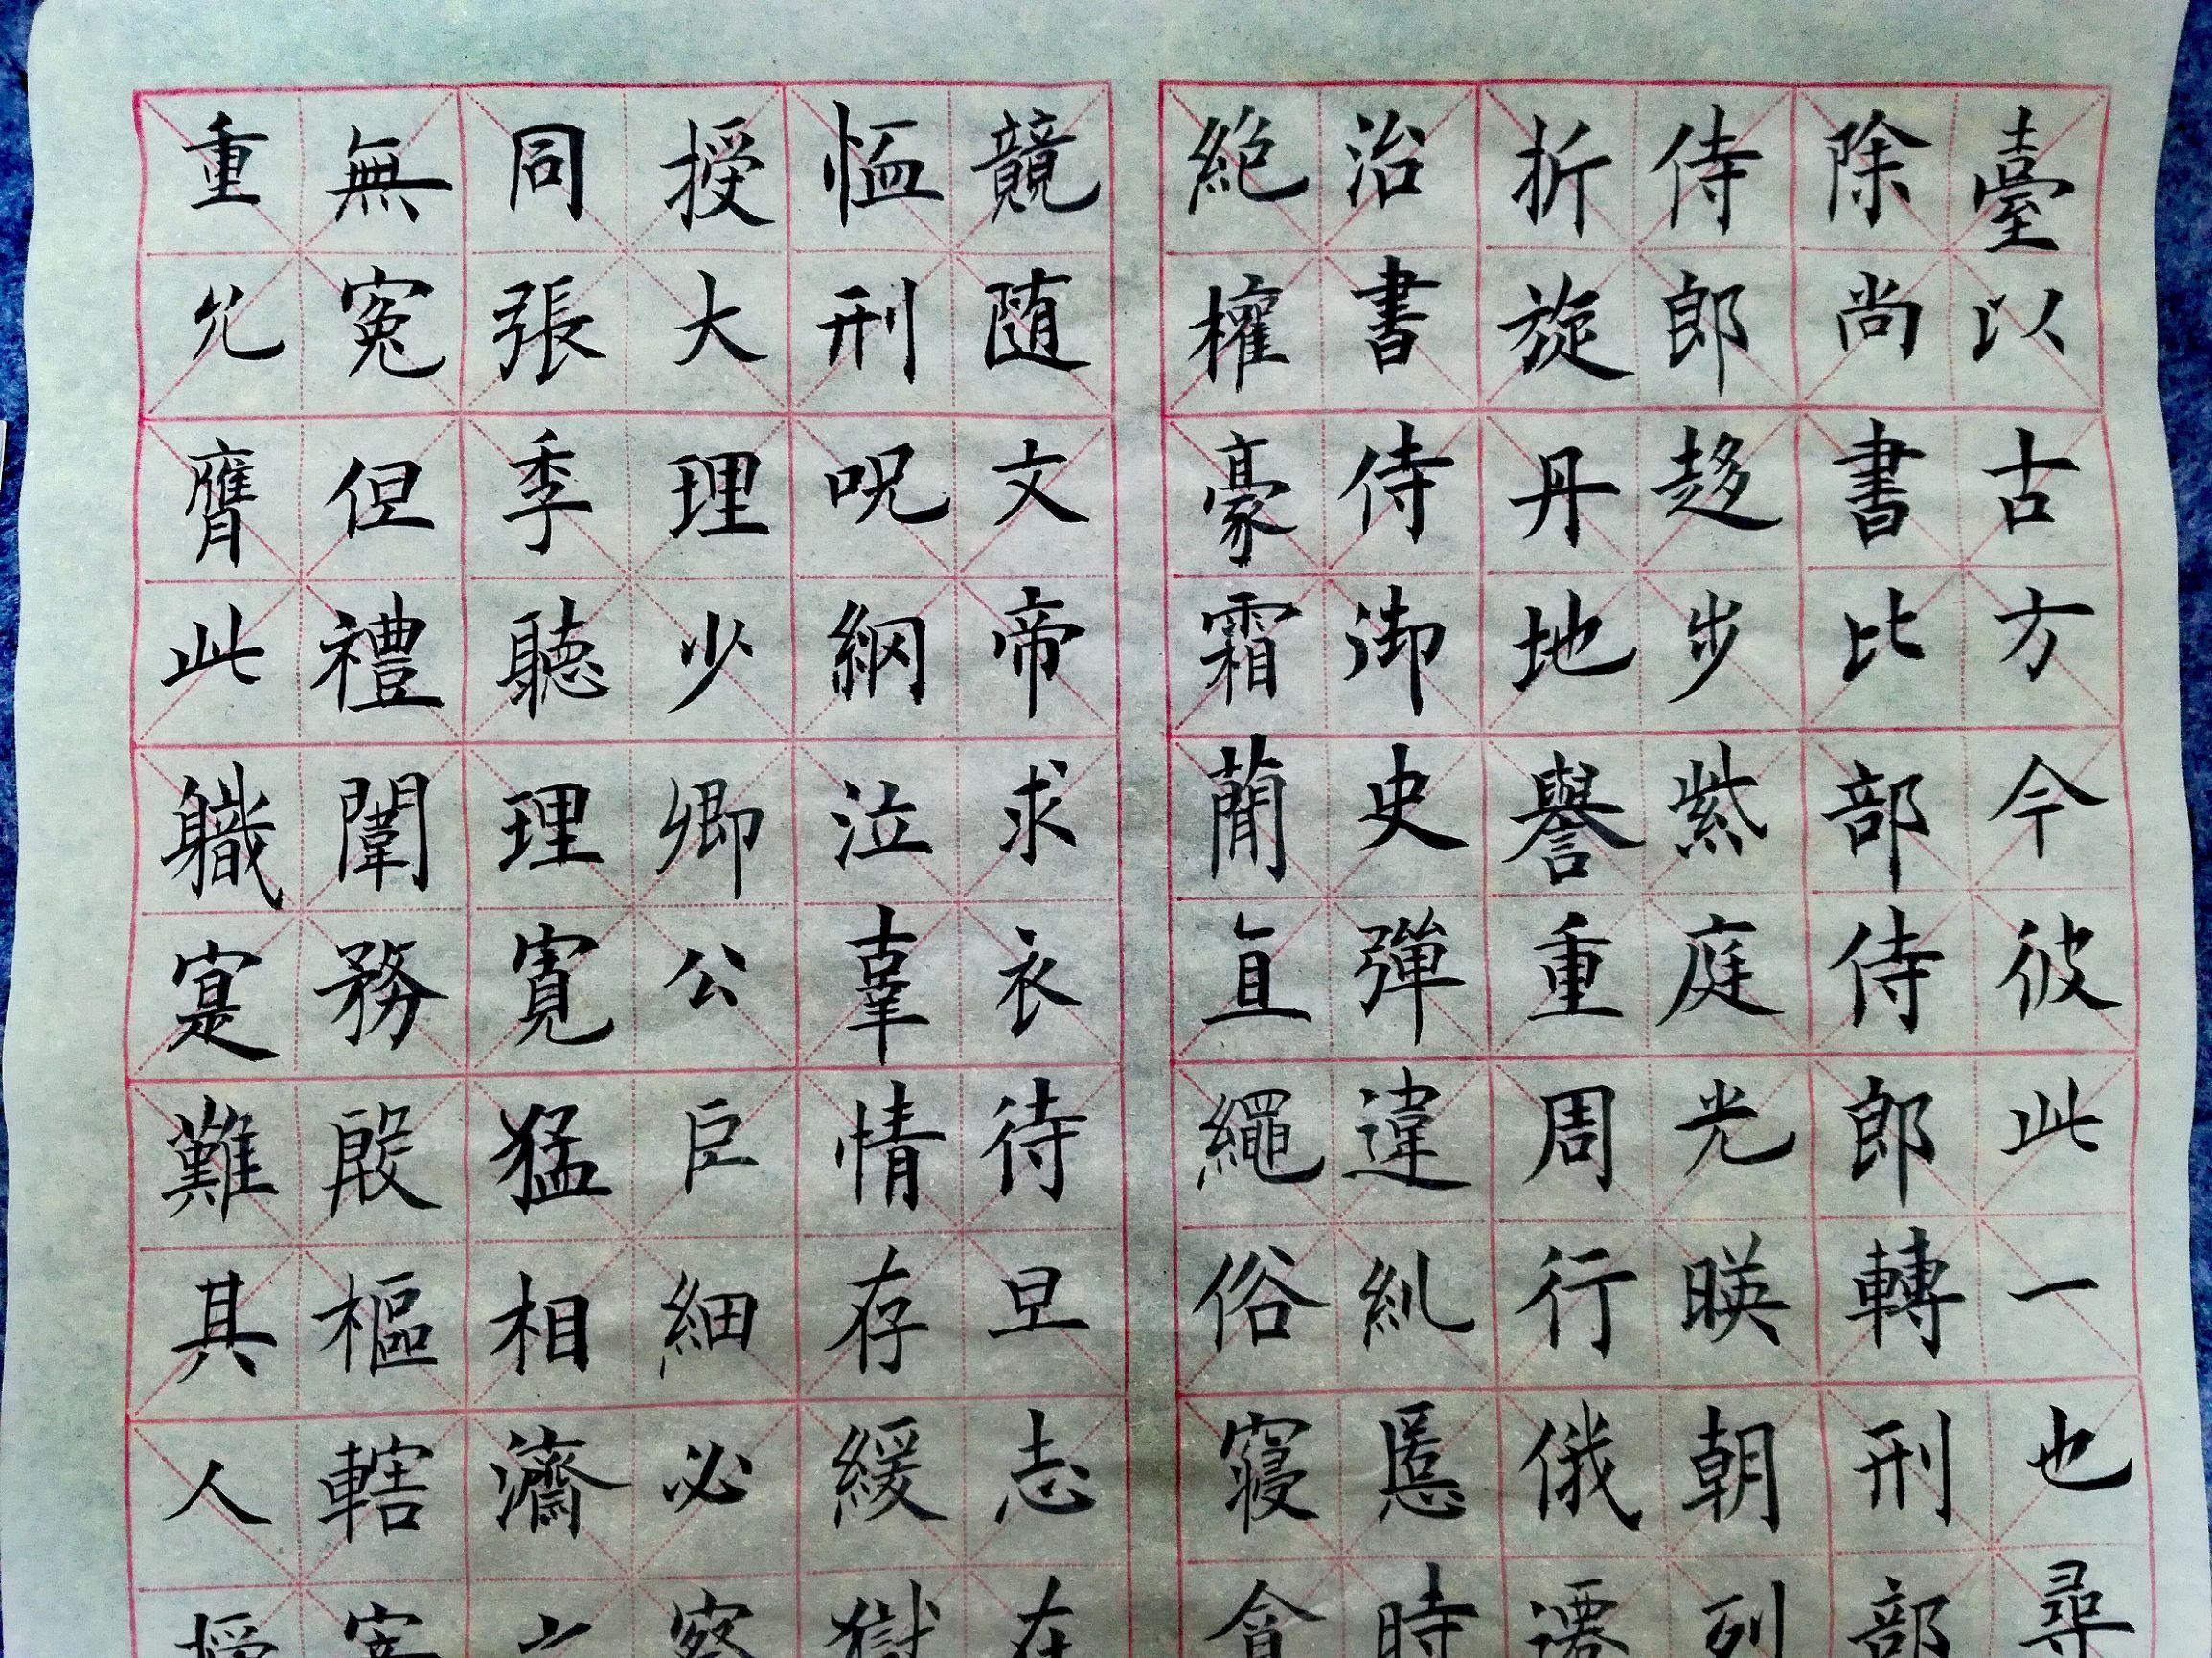 臺以古方今彼此一也尋
除尚書比部侍郎轉刑部
侍郎趍步紫庭光暎朝列
折旋丹地譽重周行俄遷
治書侍御史彈違糺慝時
絶權豪霜蕑直繩俗寢會
競随文帝求衣待旦志在
恤刑咒網泣辜情存緩獄
授大理少卿公巨細必察
同張季聽理寬猛相濟
無冤但禮闈務殷樞轄寄
重允膺此軄寔難其人授